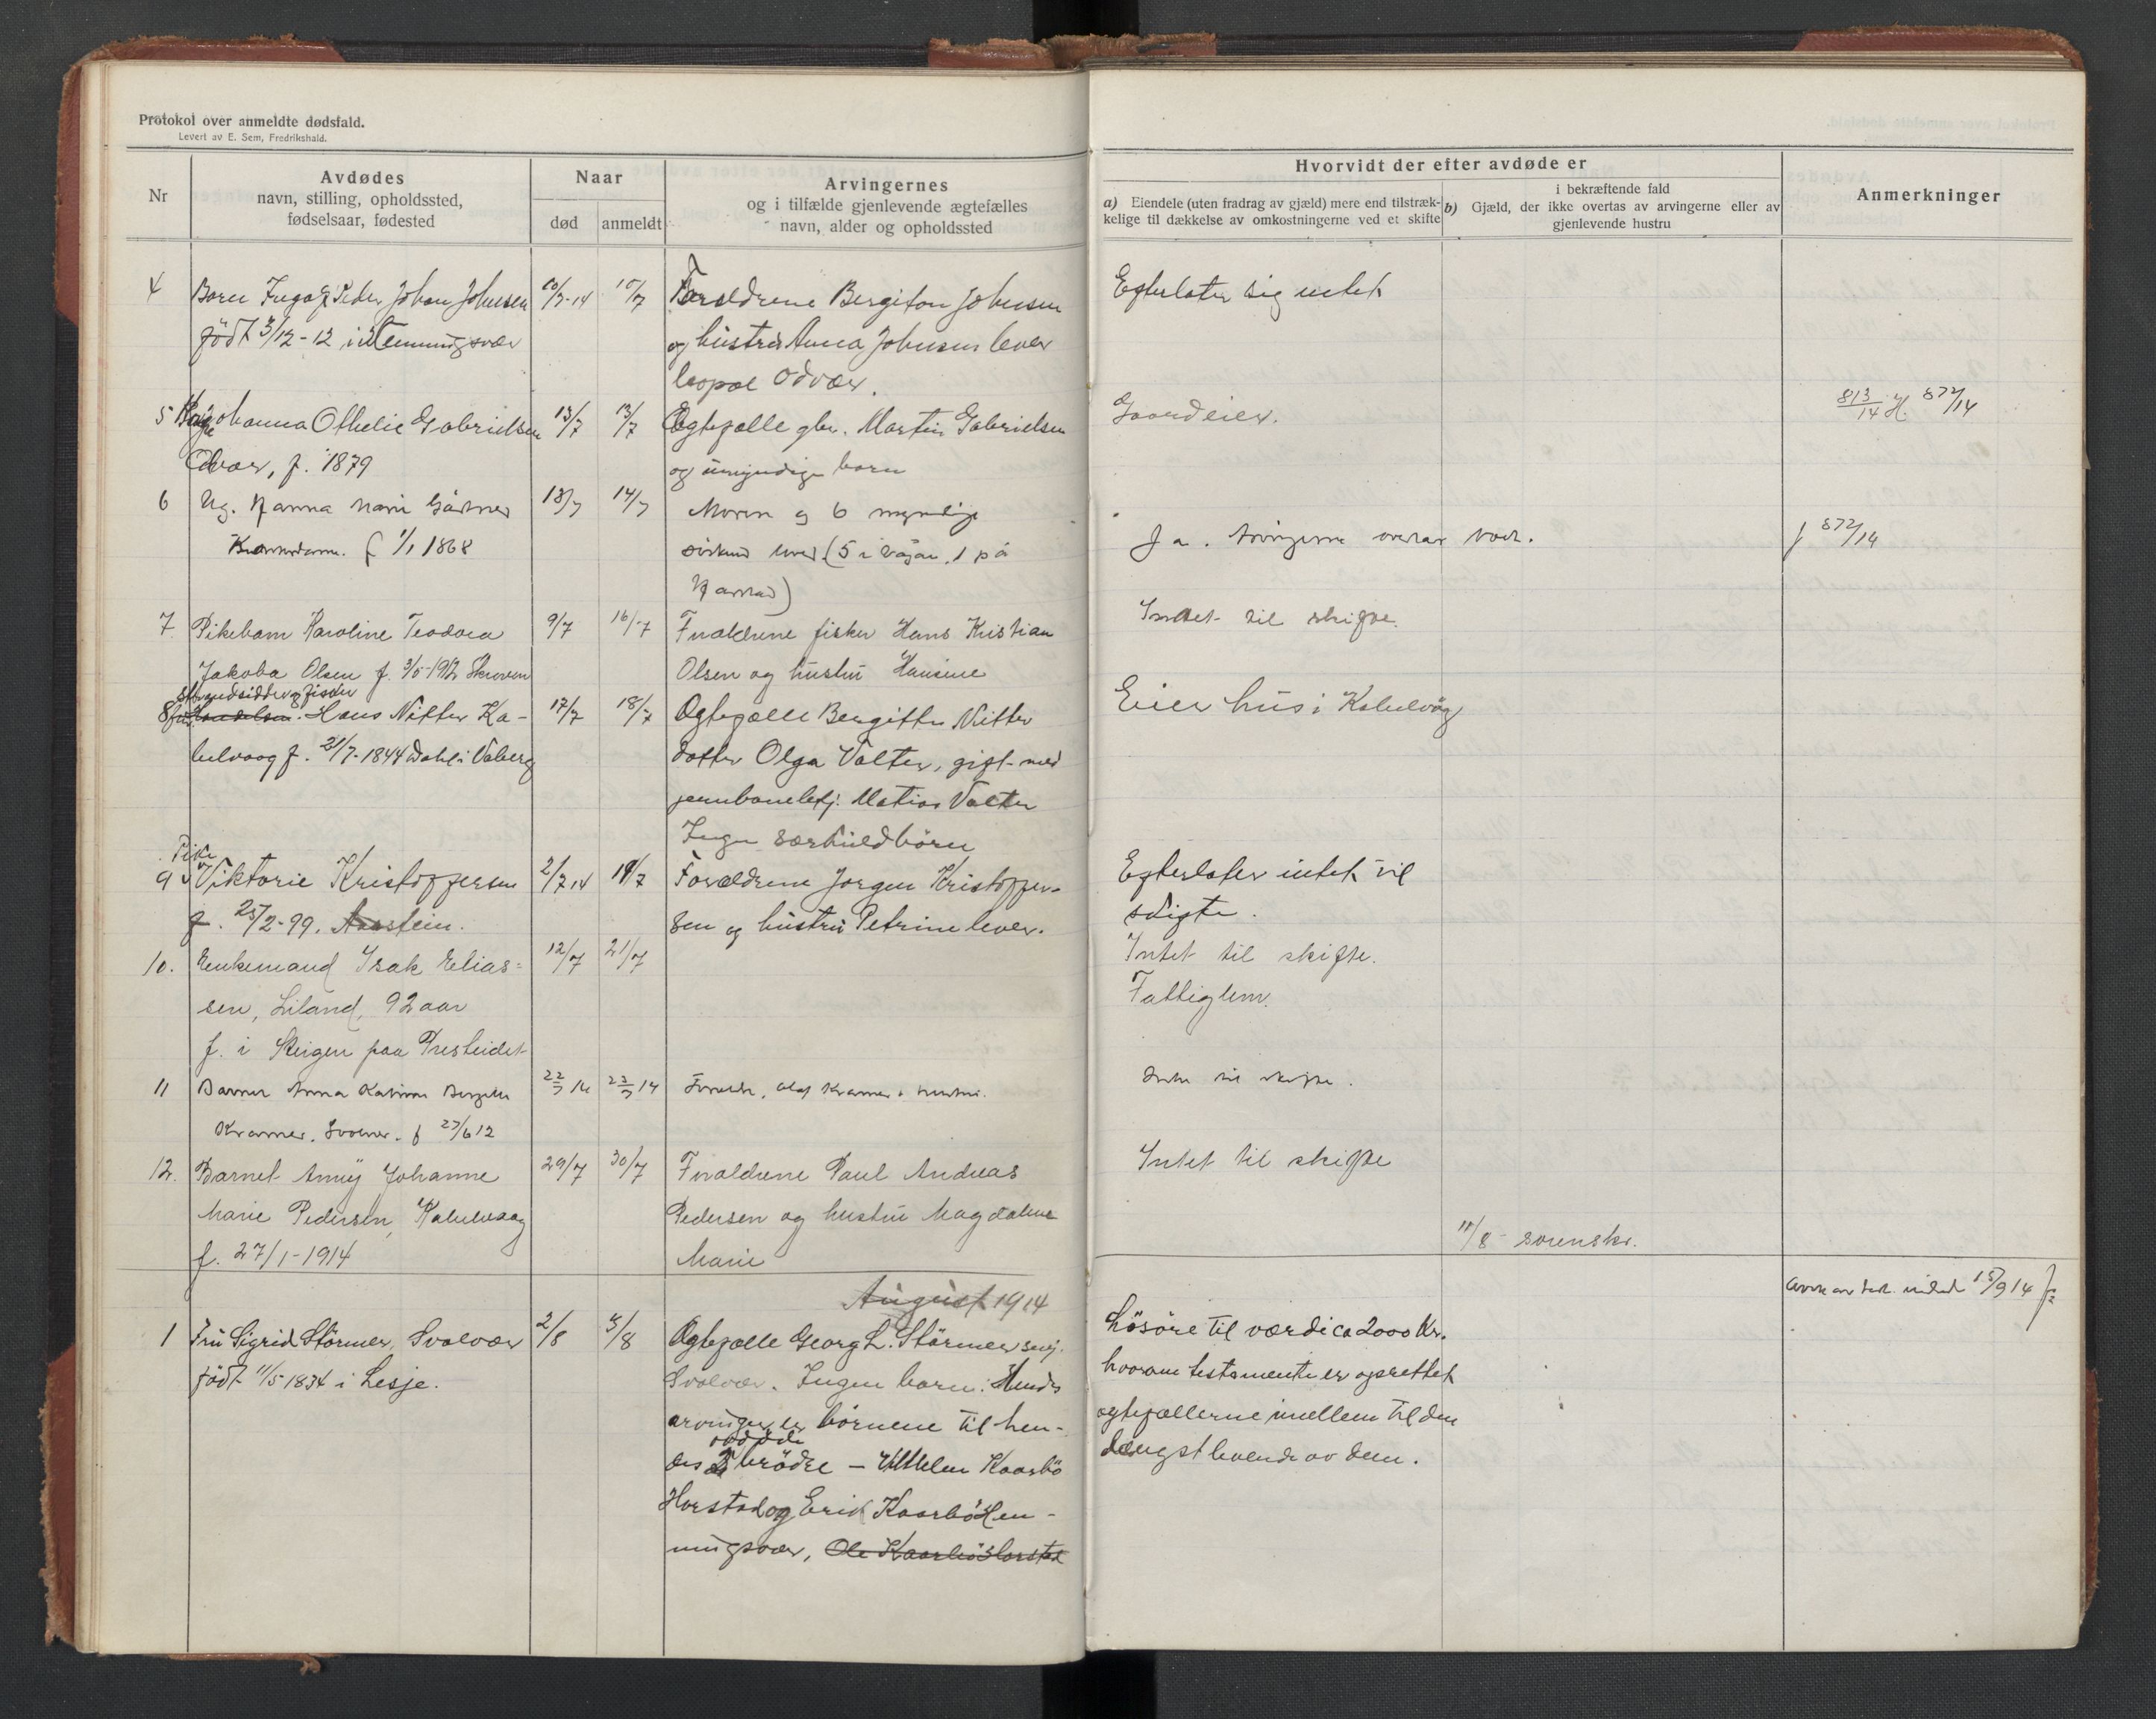 Protokol over anmeldte dødsfald.
Levert av E. Sem, Fredrikshald.
Nr
Avdødes
navn, stilling, opholdssted,
fødselsaar, fødested
Naar
død
anmeldt
Arvingernes
og i tilfælde gjenlevende ægtefælles
navn, alder og opholdssted
Hvorvidt der efter avdøde er
a) Eiendele (uten fradrag av gjæld) mere end tilstræk-
kelige til dækkelse av omkostningerne ved et skifte
i bekræftende fald
b) Gjæld, der ikke overtas av arvingerne eller av
gjenlevende hustru
Anmerkninger
4 Peder Johan Johnsen 10/7-14 10/7 Forældrene Bergiton Johnsen Efterlater sig intet
född 3/12-12 i Henningsvær og hustru Anna Johnsen lever
Odvær.
5 Johanna Othelie Gabrielsen 13/7 13/7 Ægtefælle gbr. Martin Gabrielsen Gaardeier. 813/14 H. 872/14
Odvær, f. 1879 og umyndige barn
6 Ug. Hanna Marie 13/7 14/7 Moren og 6 myndige
f 1/1 1868 søsken lever (5 i Vågan, 1 på Ja. Arvingerne overtar boet. f 872/14
Harstad)
7 Pikebarn Karoline Teodora 9/7 16/7 Forældrene fisker Hans Kristian Intet til skifte.
Jakoba Olsen f. 3/5-1912 Skroven Olsen og hustru Hansine
strandsidder og fisker
8 Hans Nitter Ka- 17/7 18/7 Ægtefælle Bergitte Nitter Eier hus i Kabelvåg
belvaag f. 21/7-1844 Dahl i Valberg datter Olga Valter, gift med
jernbanebetj. Matias Valter
Ingen særkuldbörn
Pike
9 Viktorie Kristoffersen 2/7 14 18/7 Forældrene Jørgen Kristoffer- Efterlater intet til
f. 25/2-99. sen og hustru Petrine lever. skifte.
10. Enkemand Isak Elias= 12/7 21/7 Intet til skifte.
sen, Liland, 92 aar Fattiglem.
f. i Steigen paa Presteidet
11 Barnet Anna Katrine 22/7 14 23/7 14 Forældre, Olaf Kramer & hustru. Intet til skifte.
Kramer, Svolvær. f 27/6 12
12. Barnet Anny Johanne 29/7 30/7 Forældrene Paul Andreas Intet til skifte
Marie Pedersen, Kabelvaag Pedersen og hustru Magdalene
f. 27/1-1914 Marie
11/8 sorenskr.
August 1914
15/9 14
1 Fru Sigrid Störmer, Svolvær 2/8 3/8 Ægtefælle Georg L. Störmer Lösöre til værdi ca 2000 Kr.
född 11/5 1834 i Lesje. Svolvær. Ingen barn. Hendes hvorom testamente er oprettet
arvinger er börnene til hen- ægtefællerne imellem til den
avdöde
des 2 brödre — Vilhelm Kaarbö længst levende av dem.
Harstad og Erik Kaarbö Hen-
ningsvær, Ole Kaarbö Harstad